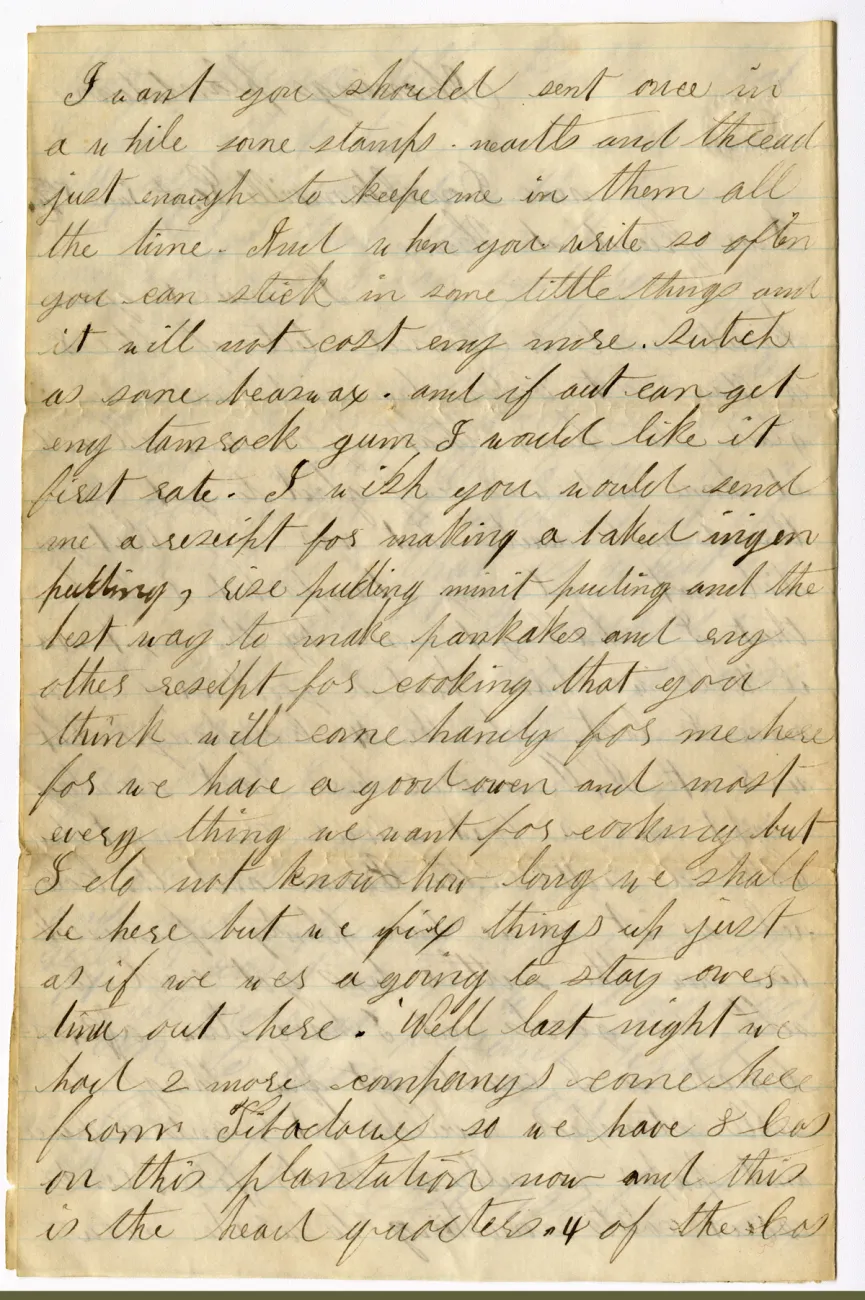 I want you should sent once in
a while some stamps. neadls and thread
just enough to keepe me in them all
the time. And when you write so often
you can stick in some little things and
it will not cost eny more. sutch
as some beaswax. and if aut can get
eny tamrock gum I would like it
first rate. I wish you would send
me a reseipt for making a baked ingen
pudding, rise pudding minit puding and the
best way to make pankakes and eny
other reseipt for cooking that you
think will come handy for me here
for we have a good owen and most
every thing we want for cooking but
I do not know how long we shall
be here but we fix things up just
as if we wer a going to stay ower
time out here. Well last night we
had 2 more companys come here
from so we have 8 Cos
on this plantation now and this
is the head quarters. 4 of the Cos